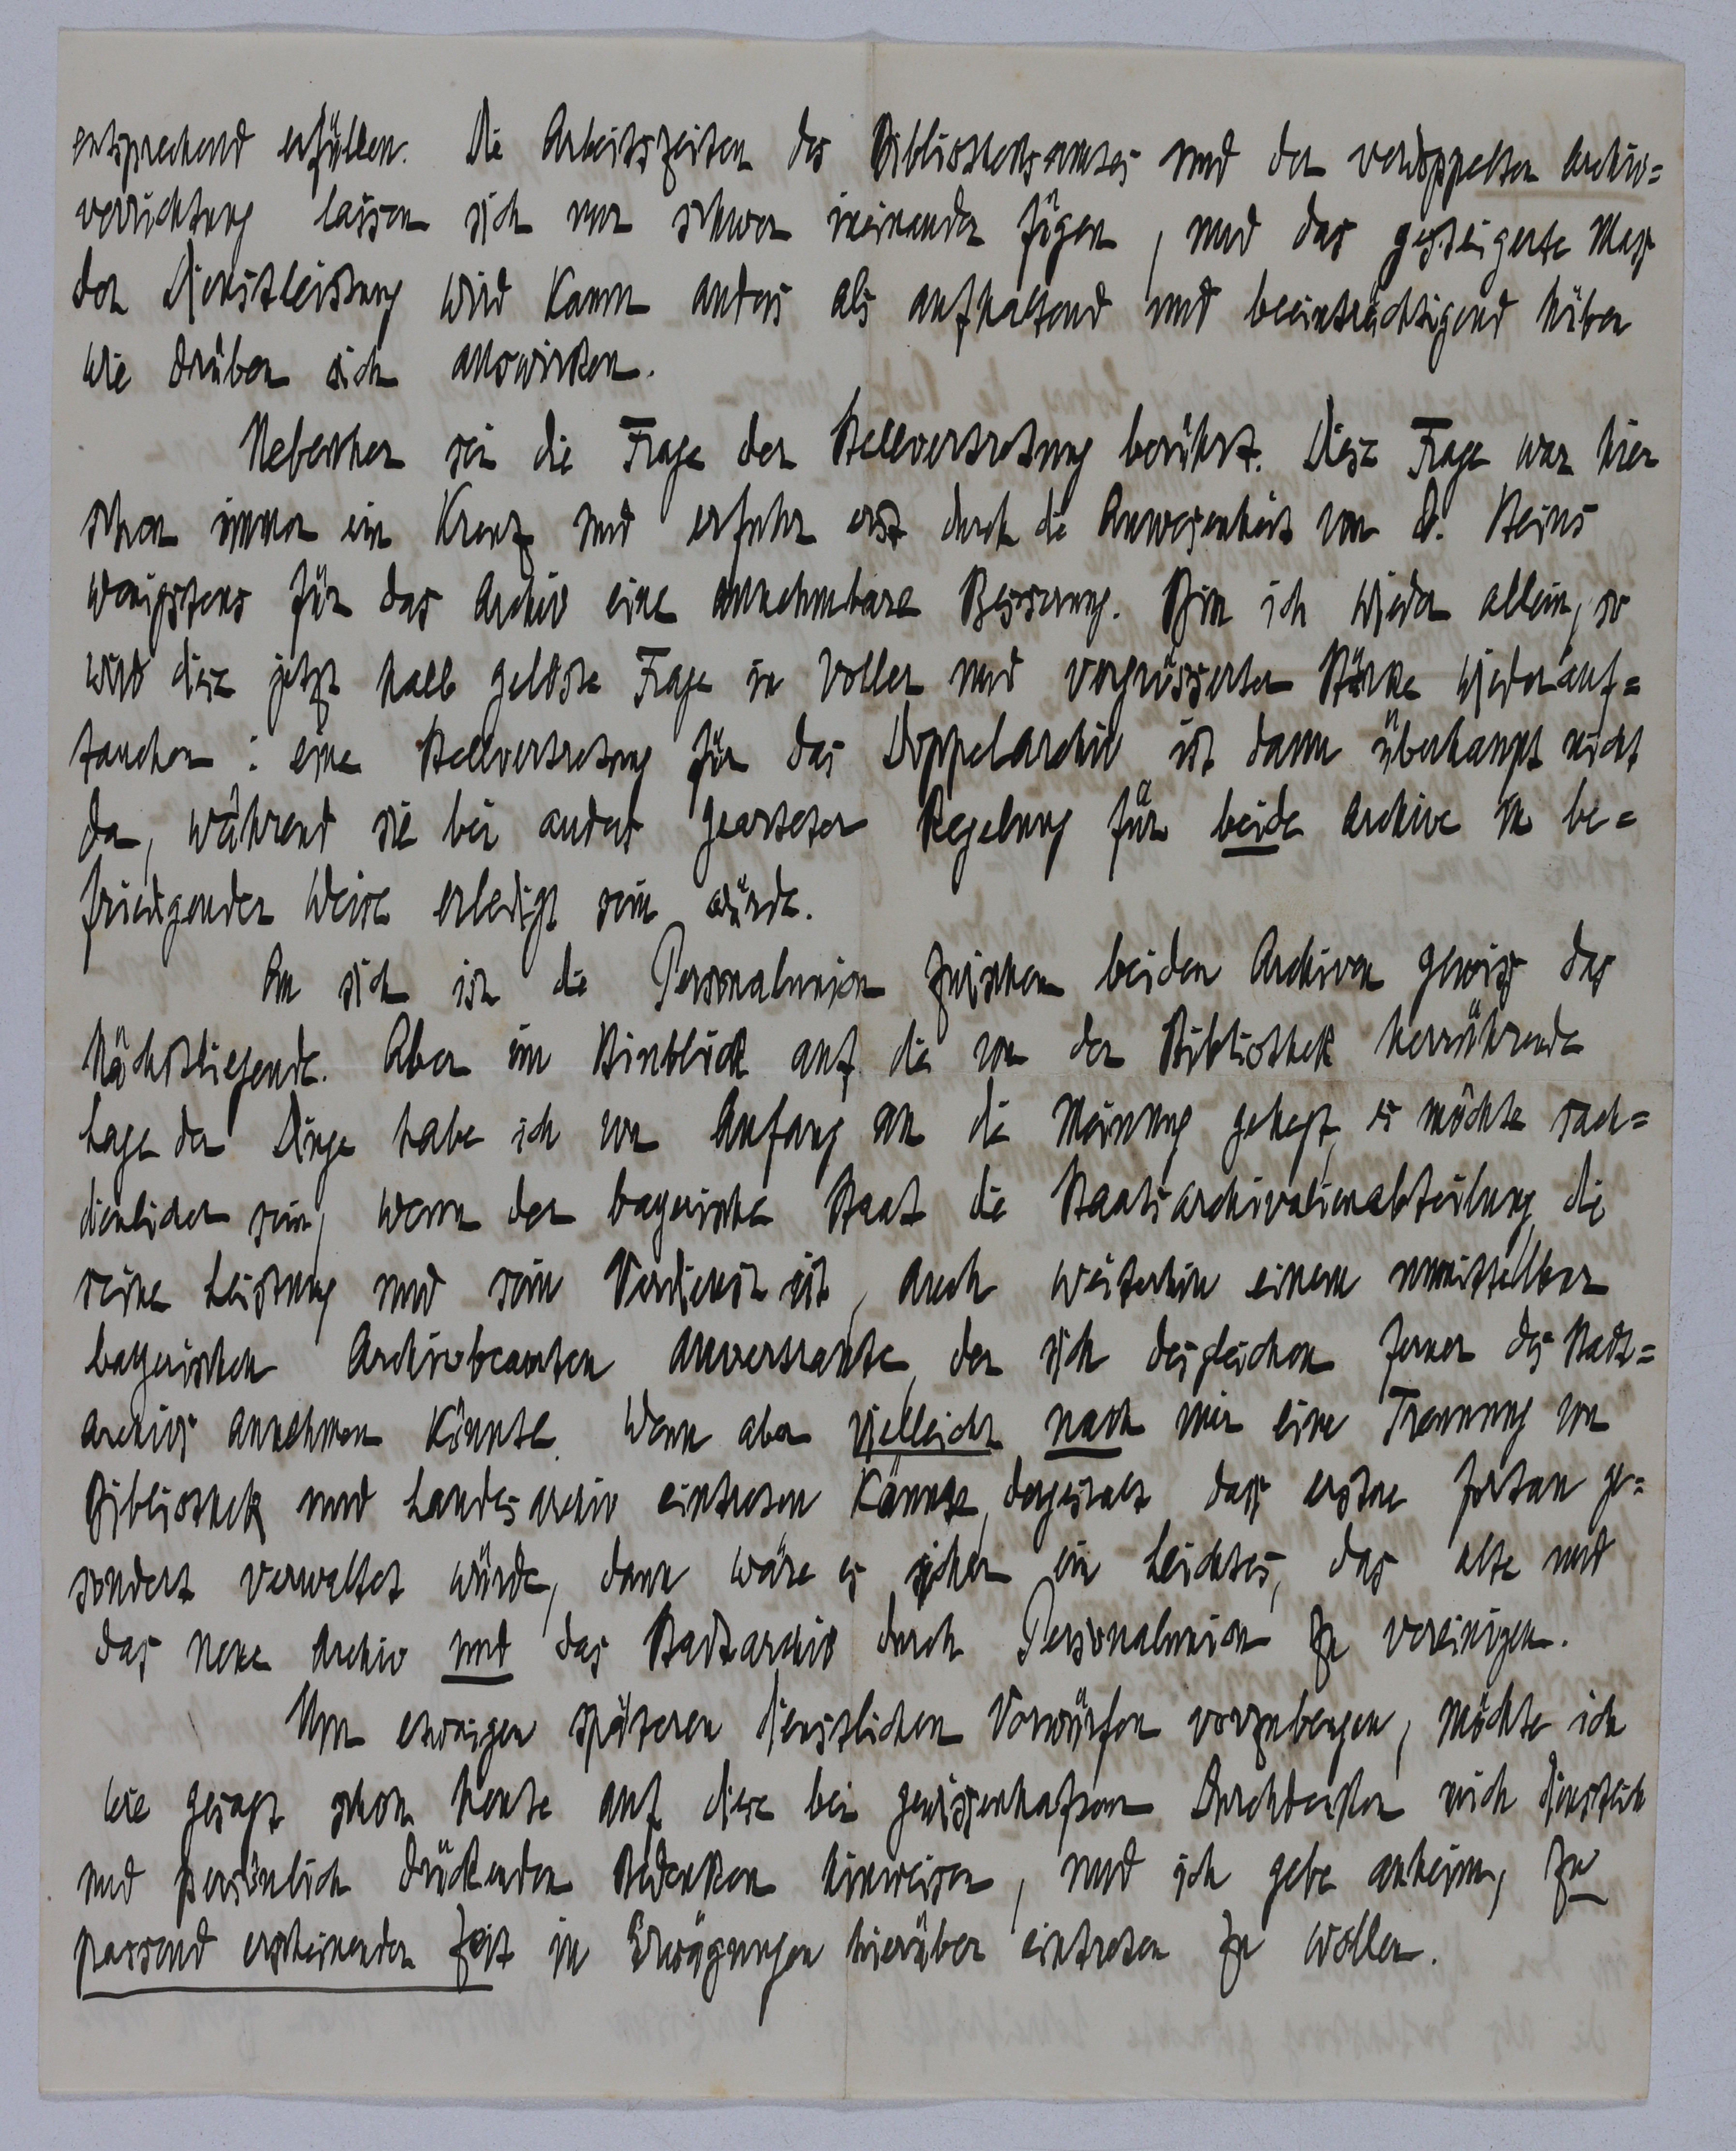 entsprechend erfüllen. Die Arbeitszeiten des Bibliotheksamtes und der verdoppelten Archiv=
verrichtung lassen sich nur schwer ineinander fügen, und das gesteigerte Mass
der Dienstleistung wird kaum anders als aufhaltend und beeinträchtigend hüben
wie drüben sich auswirken.
Nebenher sei die Frage der Stellvertretung berührt. Diese Frage war hier
schon immer ein Kreuz und erfuhr erst durch die Anwesenheit von D.
wenigstens für das Archiv eine annehmbare Besserung. Bin ich wieder allein, so
wird diese jetzt halb gelöste Frage in voller und vergrösserter Stärke wieder auf=
tauchen: eine Stellvertretung für das Doppelarchiv ist dann überhaupt nicht
da, während sie bei anders gearteter Regelung für beide Archive in be=
friedigender Weise erledigt sein würde.
An sich ist die Personalunion zwischen beiden Archiven gewiss das
Nächstliegende. Aber im Hinblick auf die von der Bibliothek herrührende
Lage der Dinge habe ich von Anfang an die Meinung gehegt, es möchte sach=
dienlicher sein, wenn der bayerische Staat die Staatsarchivalienabteilung, die
seine Leistung und sein Verdienst ist, auch weiterhin einem unmittelbar
bayerischen Archivbeamten anvertraute, der sich desgleichen ferner des Stadt=
archivs annehmen könnte. Wenn aber vielleicht nach mir eine Trennung von
Bibliothek und Landesarchiv eintreten könnte, dergestalt dass erstere fortan ge=
sondert verwaltet würde, dann wäre es sicher ein Leichtes, das alte und
das neue Archiv und das Stadtarchiv durch Personalunion zu vereinigen.
Um etwaigen späteren dienstlichen Vorwürfen vorzubeugen, möchte ich
wie gesagt schon heute auf diese bei gewissenhaftem Durchdenken mich dienstlich
und persönlich drückenden Bedenken hinweisen, und ich gebe anheim, zu
passend erscheinender Zeit in Erwägungen hierüber eintreten zu wollen.